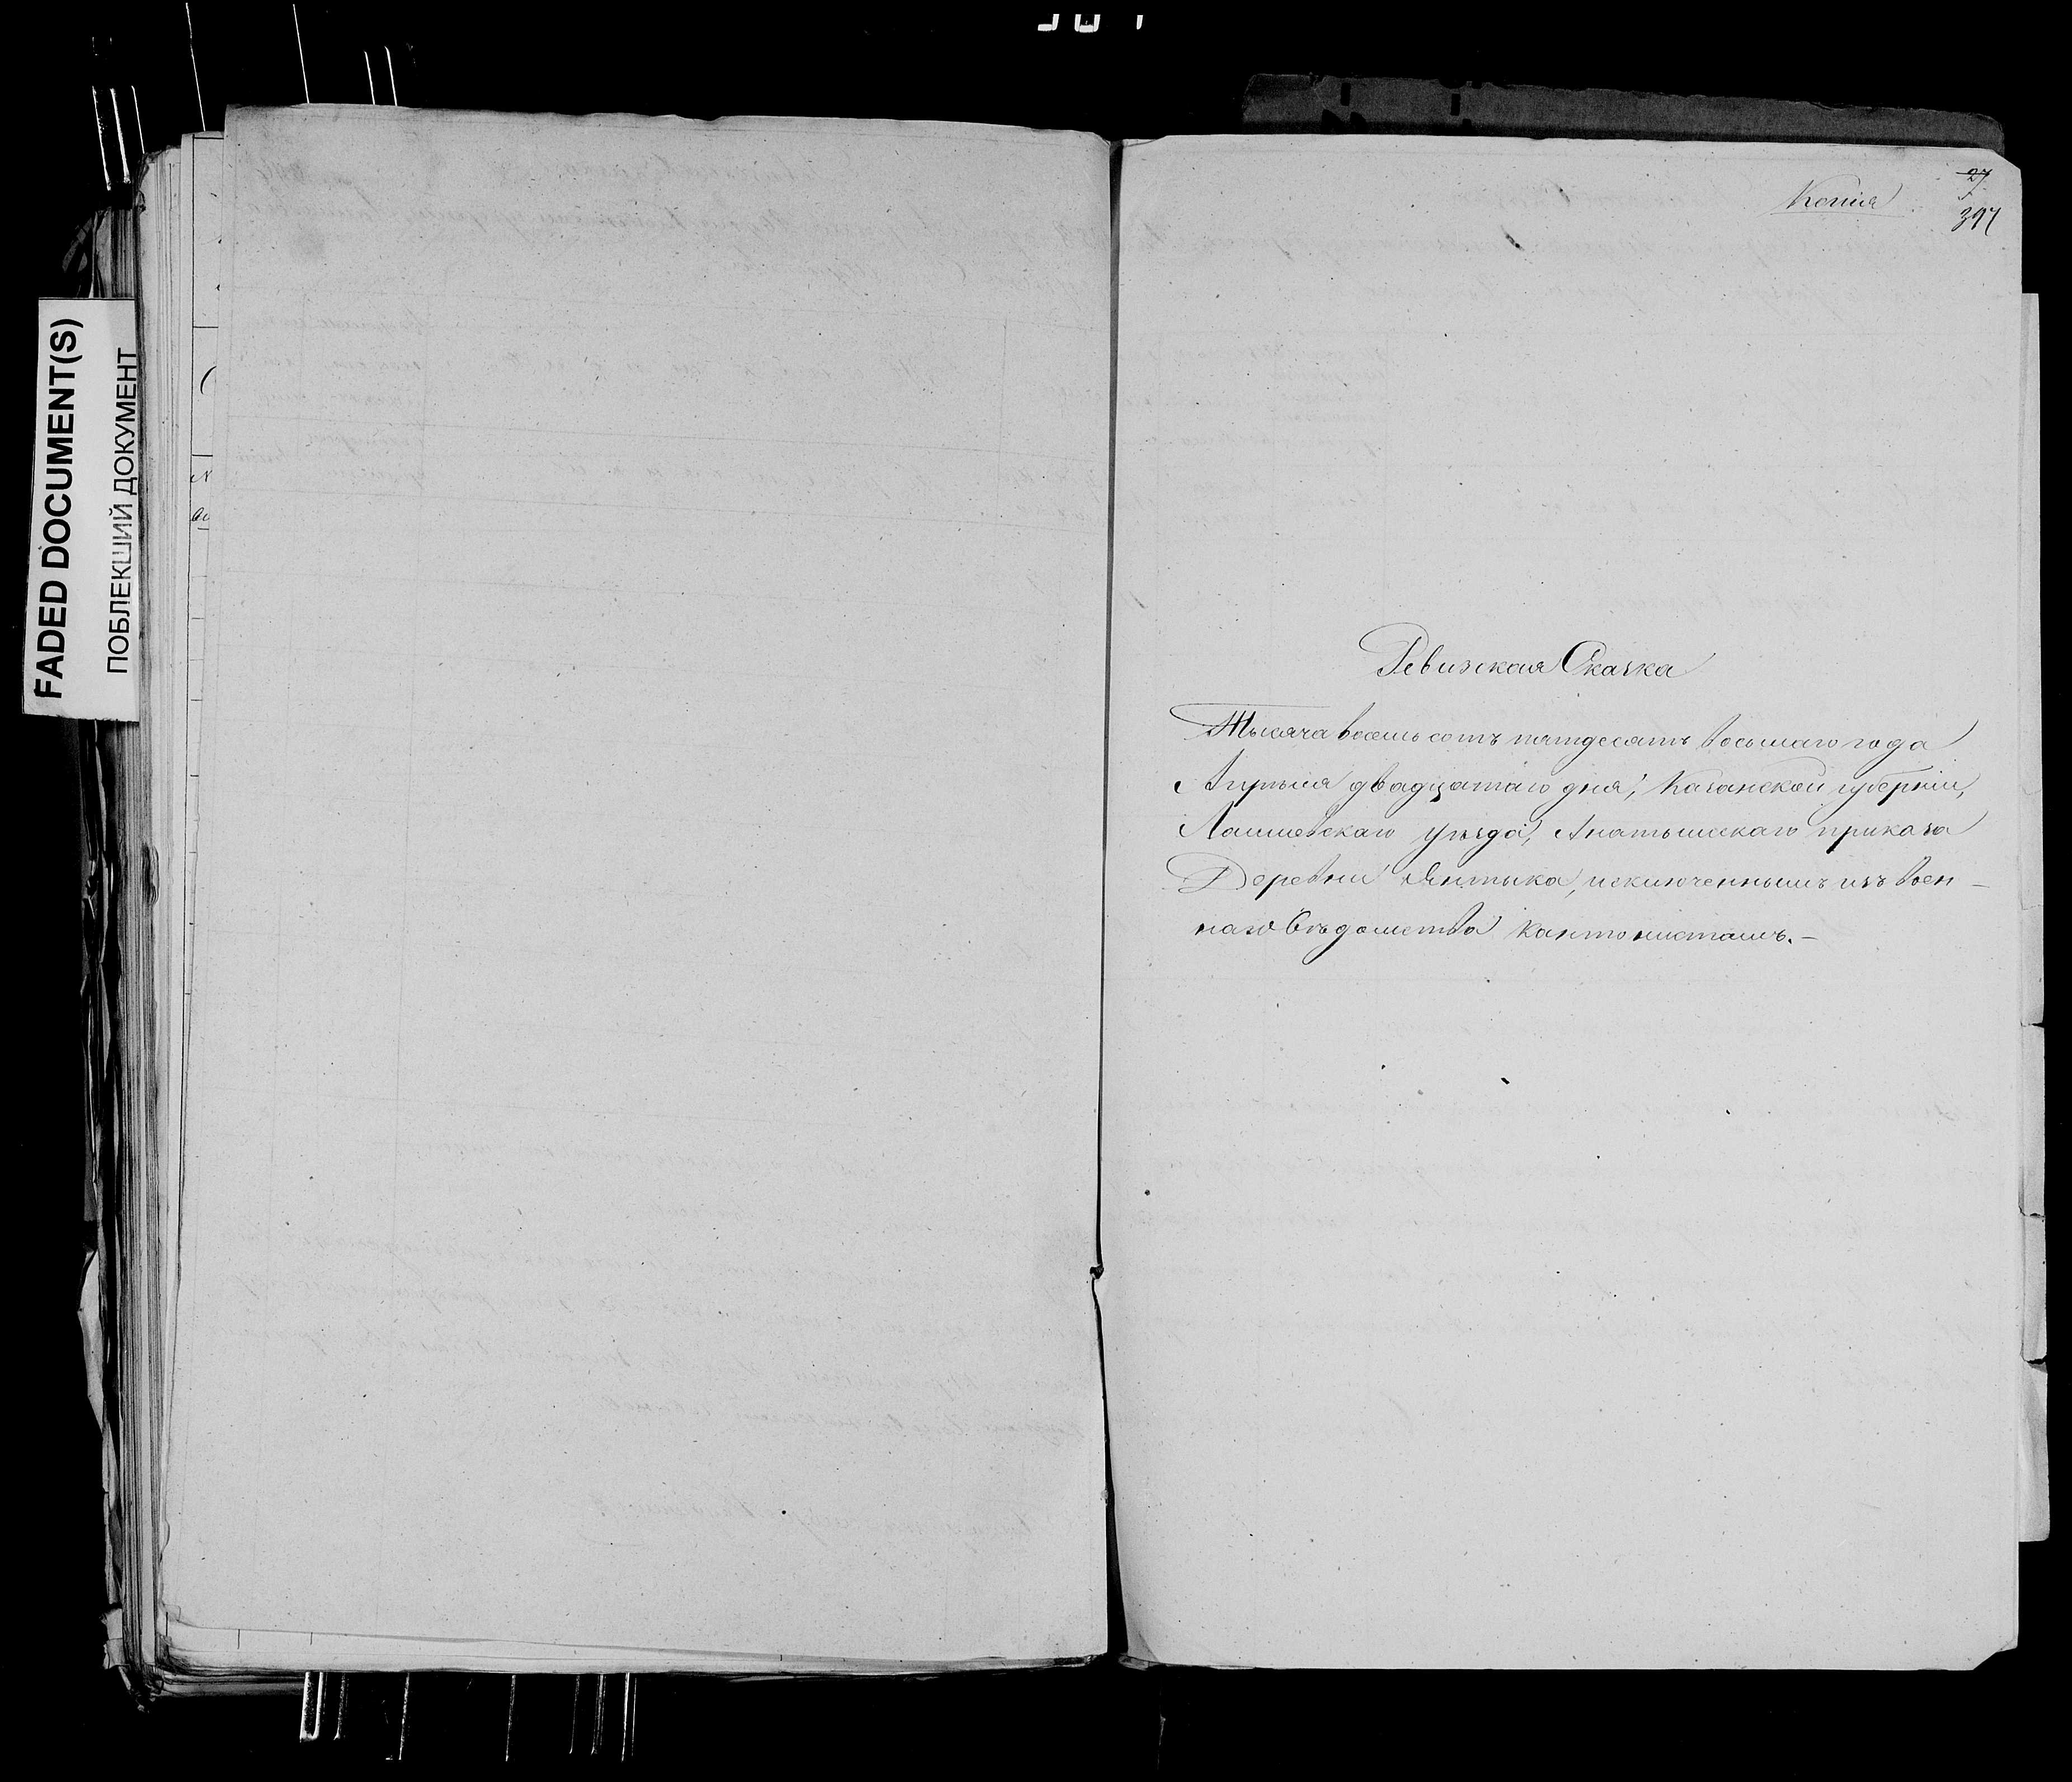 FADED DOCUMENT(S)
ПОБЛЕКШИЙ ДОКУМЕНТ
Копія
27
397
Ревизская Сказка
Тысяча восемь сотъ пятдесятъ восьмаго года
Апрѣля двадцатаго дня, Казанской губерніи,
Лаишевскаго уѣзда, Анатышскаго приказа
Деревни Янтыка, исключеннымъ изъ воен-
наго вѣдомства кантонистамъ.-